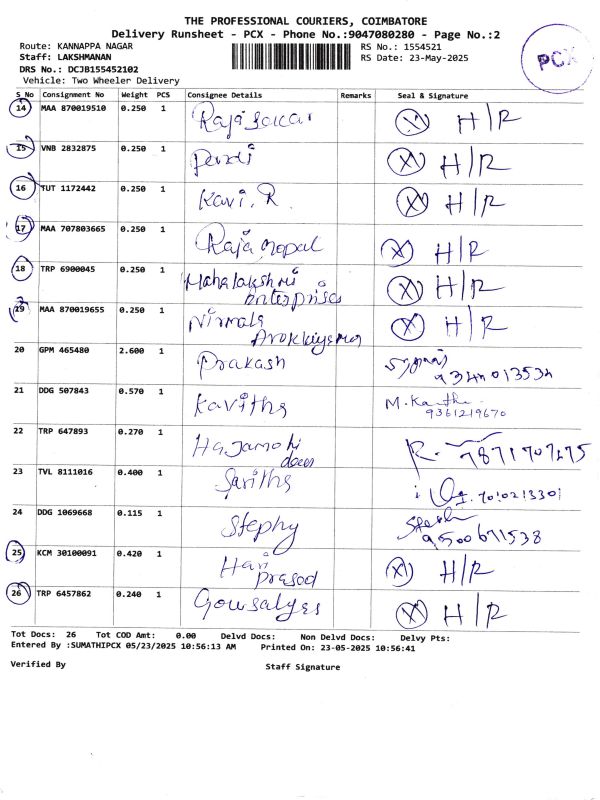 THE PROFESSIONAL COURIERS, COIMBATORE
Delivery Runsheet - PCX - Phone No.:9047080280 - Page No.:2
Route: KANNAPPA NAGAR RS No.: 1554521
Staff: LAKSHMANAN RS Date: 23-May-2025
DRS No.: DCJB155452102
Vehicle: Two Wheeler Delivery
PCX
S_No Consignment No Weight PCS Consignee Details Remarks Seal & Signature
14 MAA 870019510 0.250 1 H/R
15 VNB 2832875 0.250 1 H/R
16 TUT 1172442 0.250 1 Kavi. R H/R
17 MAA 707803665 0.250 1 Raja gopal H/R
18 TRP 6900045 0.250 1 Mahalakshmi Enterprises H/R
19 MAA 870019655 0.250 1 Nirmala H/R
20 GPM 465480 2.600 1 Prakash
21 DDG 507843 0.570 1 Kavitha M.Kantha 9361219670
22 TRP 647893 0.270 1 R.
23 TVL 8111016 0.400 1 Saritha
24 DDG 1069668 0.115 1 Stephy 9500671538
25 KCM 30100091 0.420 1 Hari Prasad H/R
26 TRP 6457862 0.240 1 Gowsalyes H/R
Tot Docs: 26 Tot COD Amt: 0.00 Delvd Docs: Non Delvd Docs: Delvy Pts:
Entered By :SUMATHIPCX 05/23/2025 10:56:13 AM Printed On: 23-05-2025 10:56:41
Verified By Staff Signature